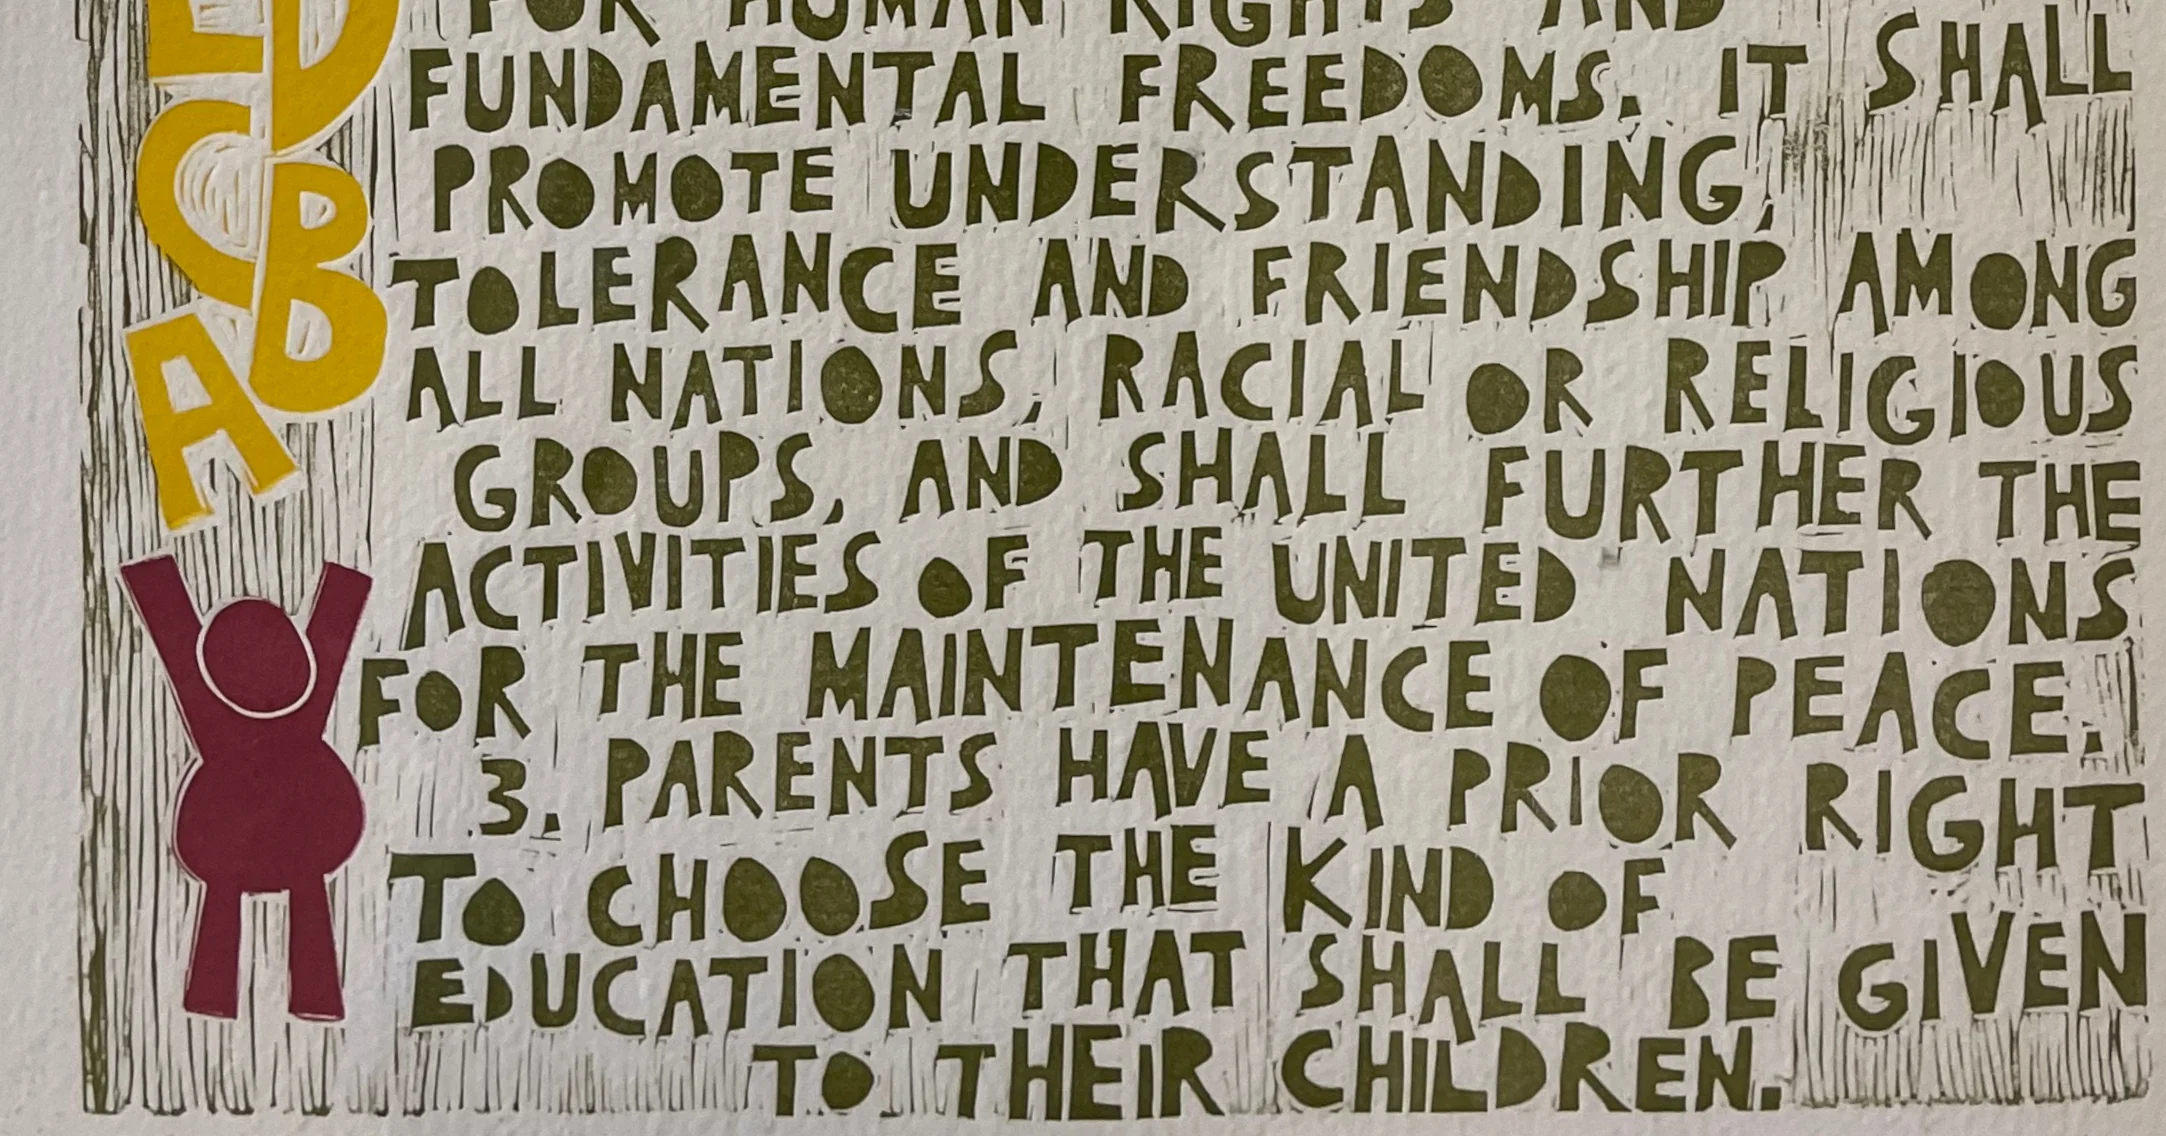 E D
FOR HUMAN RIGHTS AND
FUNDAMENTAL FREEDOMS. IT SHALL
C
PROMOTE UNDERSTANDING,
B
TOLERANCE AND FRIENDSHIP AMONG
A
ALL NATIONS, RACIAL OR RELIGIOUS
GROUPS, AND SHALL FURTHER THE
ACTIVITIES OF THE UNITED NATIONS
FOR THE MAINTENANCE OF PEACE.
3. PARENTS HAVE A PRIOR RIGHT
TO CHOOSE THE KIND OF
EDUCATION THAT SHALL BE GIVEN
TO THEIR CHILDREN.